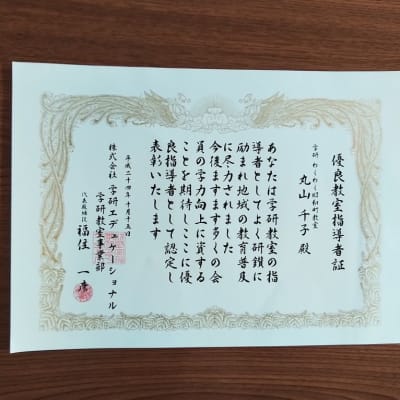 優良教室指導者証
学研わくわく昭和町教室
丸山 千子 殿
あなたは学研教室の指
導者としてよく研鑽に
励まれ地域の教育普及
に尽力されました
今後ますます多くの会
員の学力向上に資する
ことを期待しここに優
良指導者として認定し
表彰いたします
平成二十四年十月十五日
株式会社 学研エデュケーショナル
学研教室事業部
代表取締役 福住 一彦